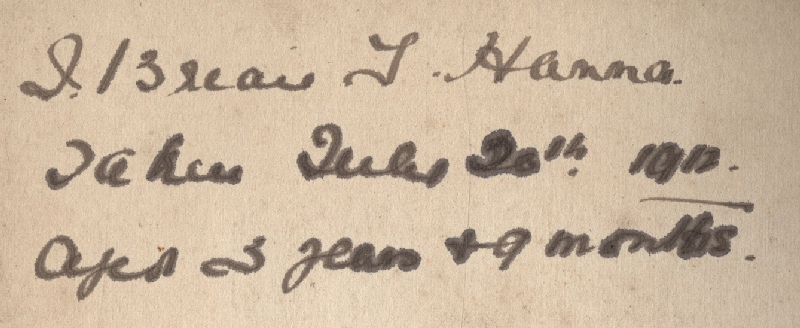 J. Brian T. Hanna.
Taken July 20th. 1912.
Aged 3 years + 9 months.